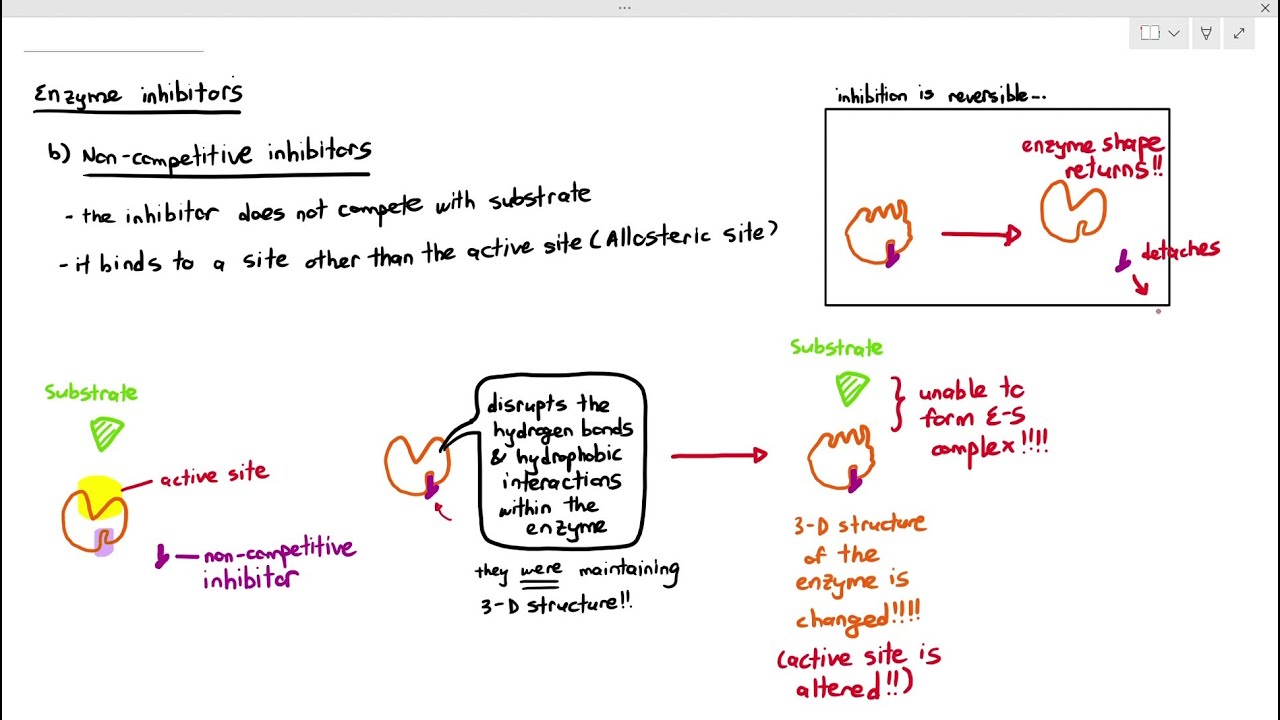 Enzyme inhibitors
b) Non-competitive inhibitors
- the inhibitor does not compete with substrate
- it binds to a site other than the active site (Allosteric site)
inhibition is reversible...
enzyme shape
returns!!
detaches
Substrate
active site
non-competitive
inhibitor
disrupts the
hydrogen bonds
& hydrophobic
interactions
within the
enzyme
they were maintaining
3-D structure!!
Substrate
unable to
form E-S
complex!!!!
3-D structure
of the
enzyme is
changed!!!!
(active site is
altered!!)